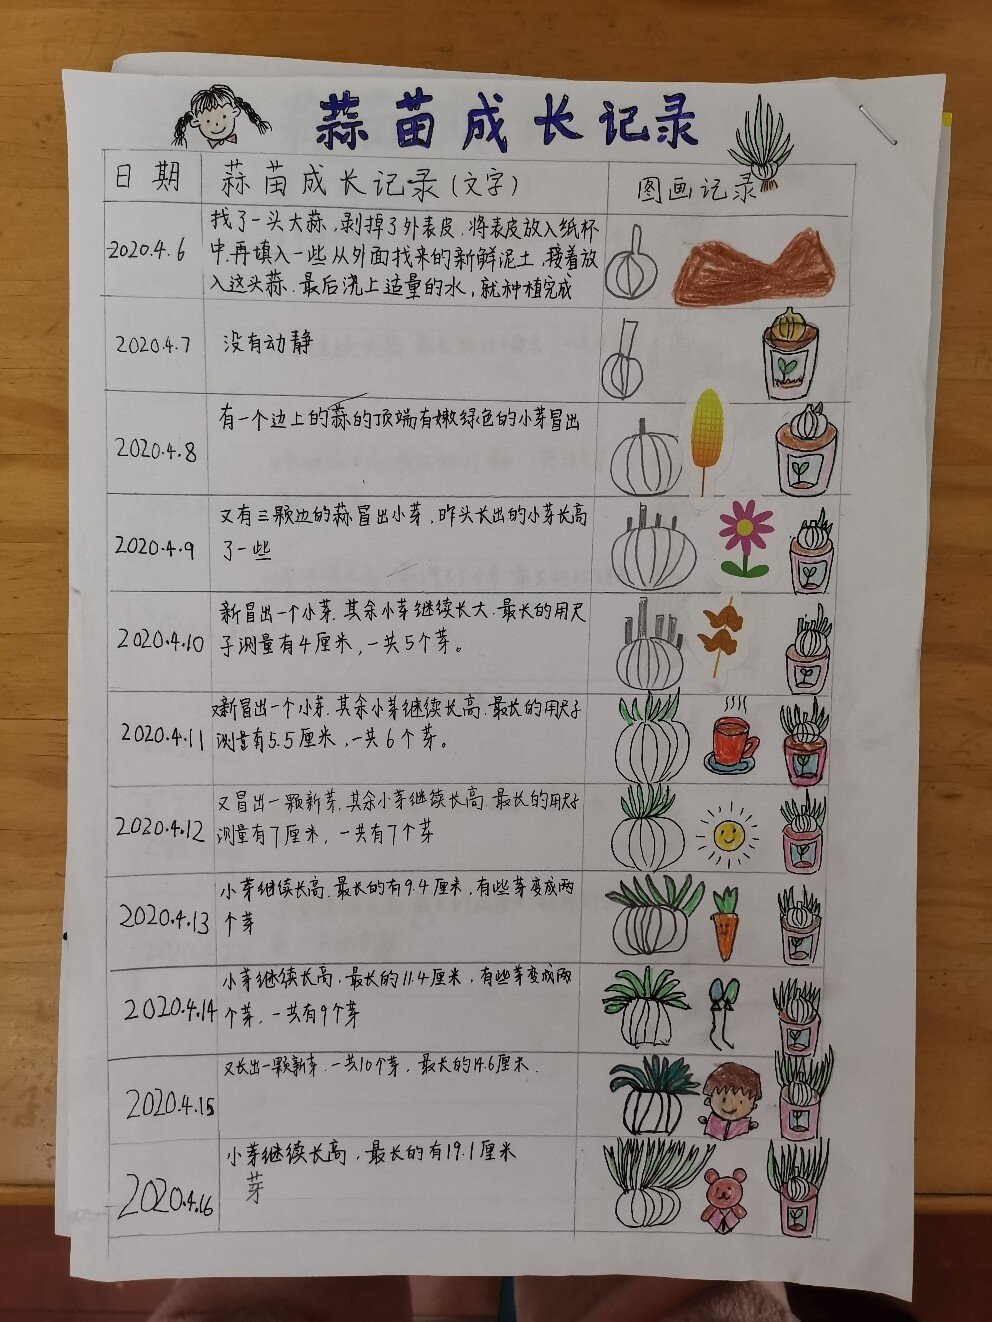 蒜苗成长记录
日期
蒜苗成长记录(文字)
图画记录
2020.4.6
找了一头大蒜,剥掉了外表皮,将表皮放入纸杯
中,再填入一些从外面找来的新鲜泥土,接着放
入这头蒜.最后浇上适量的水,就种植完成
2020.4.7
没有动静
2020.4.8
有一个边上的蒜的顶端有嫩绿色的小芽冒出
2020.4.9
又有三颗边的蒜冒出小芽,昨头长出的小芽长高
了一些
2020.4.10
新冒出一个小芽.其余小芽继续长大.最长的用尺
子测量有4厘米,一共5个芽。
2020.4.11
又新冒出一个小芽.其余小芽继续长高.最长的用尺子
测量有5.5厘米,一共6个芽。
2020.4.12
又冒出一颗新芽.其余小芽继续长高.最长的用尺子
测量有7厘米,一共有7个芽
2020.4.13
小芽继续长高.最长的有9.4厘米,有些芽变成两
个芽
2020.4.14
小芽继续长高,最长的11.4厘米,有些芽变成两
个芽,一共有9个芽
2020.4.15
又长出一颗新芽.一共10个芽,最长的14.6厘米.
2020.4.16
小芽继续长高,最长的有19.1厘米
芽